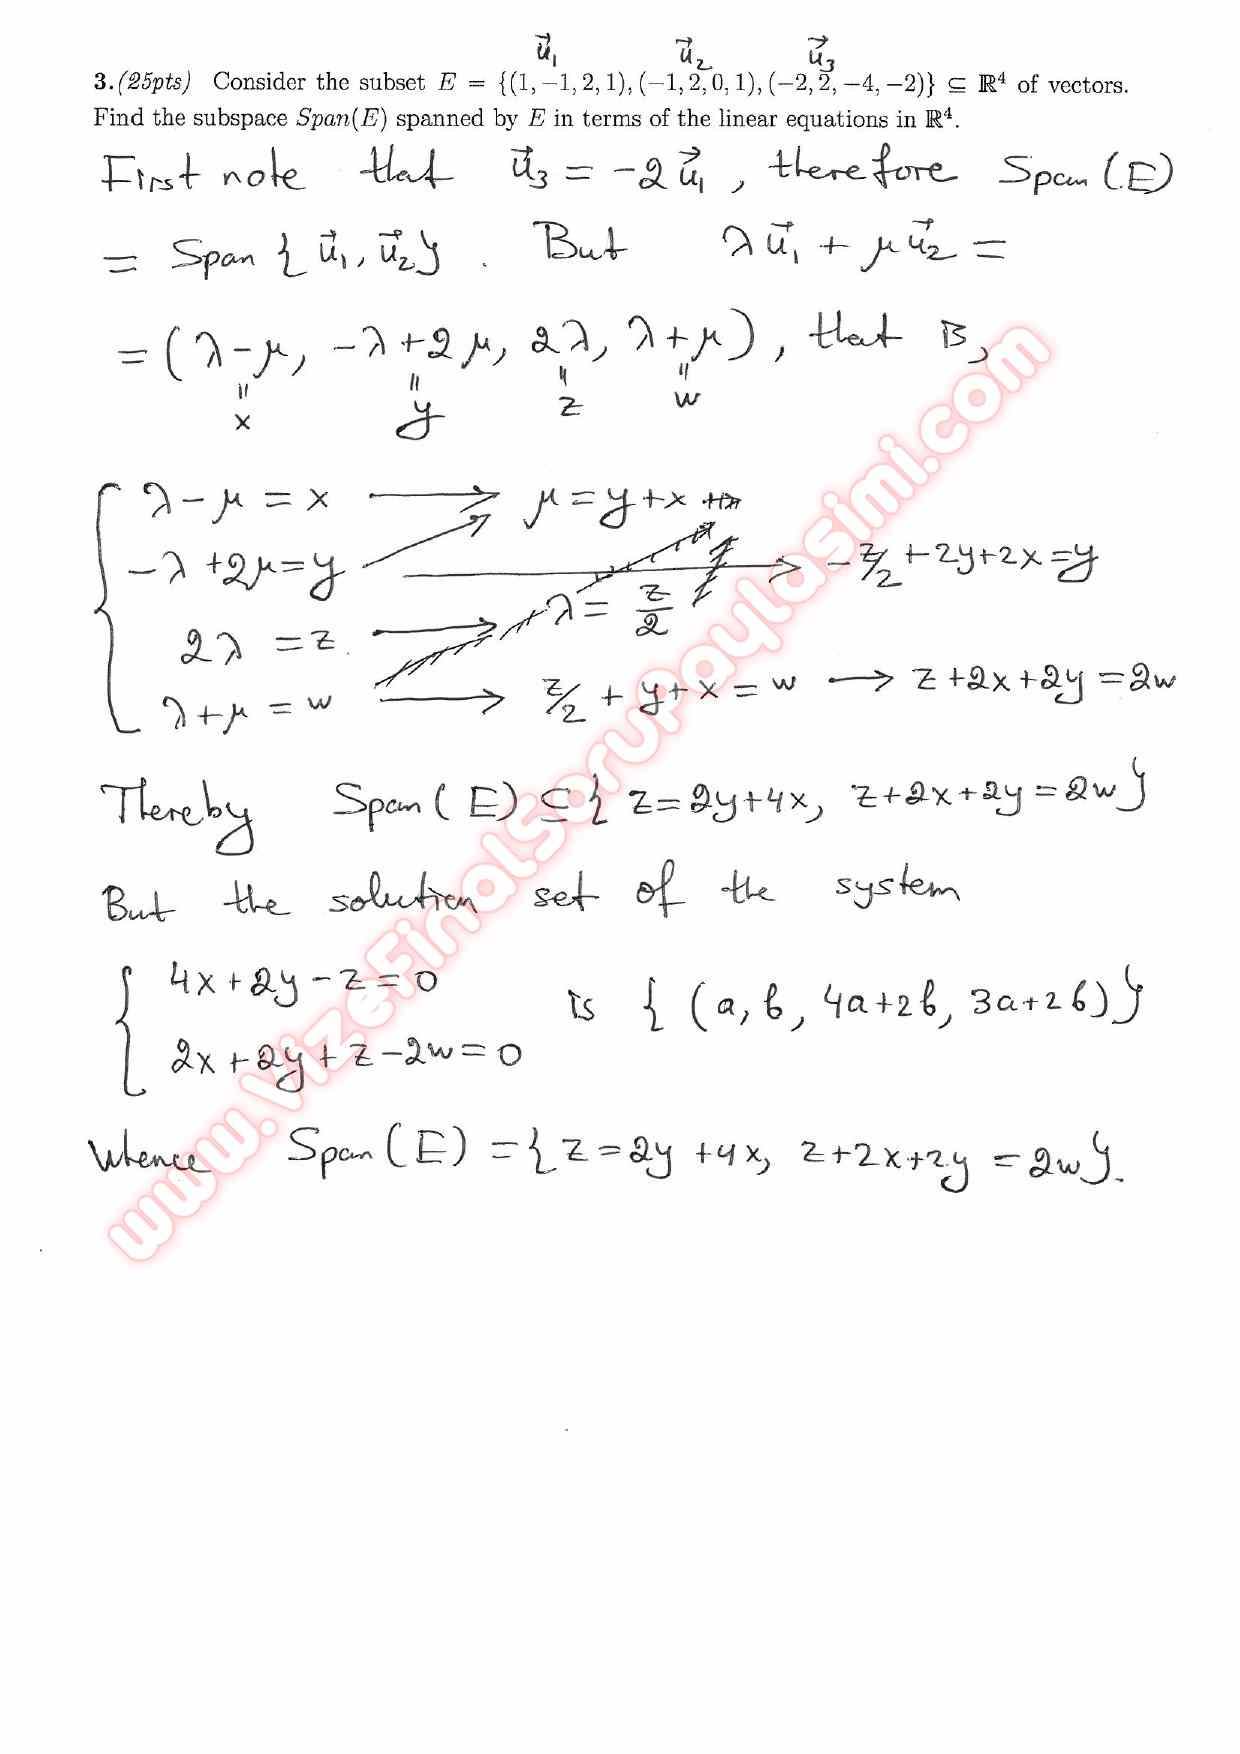 u⃗₁ u⃗₂ u⃗₃
3.(25pts) Consider the subset E = {(1, −1, 2, 1), (−1, 2, 0, 1), (−2, 2, −4, −2)} ⊆ ℝ⁴ of vectors.
Find the subspace Span(E) spanned by E in terms of the linear equations in ℝ⁴.
First note that u⃗₃ = -2u⃗₁, therefore Span(E)
= Span{u⃗₁, u⃗₂}. But λu⃗₁ + μu⃗₂ =
= (λ-μ, -λ+2μ, 2λ, λ+μ), that is,
= = = =
x y z w
λ-μ = x → μ = y+x
-λ+2μ = y → -z/2 + 2y+2x = y
2λ = z → λ = z/2
λ+μ = w → z/2 + y + x = w → z+2x+2y = 2w
Thereby Span(E) ⊆ { z = 2y+4x, z+2x+2y = 2w }
But the solution set of the system
{ 4x+2y-z = 0
2x+2y+z-2w = 0 is { (a, b, 4a+2b, 3a+2b) }
Whence Span(E) = { z = 2y+4x, z+2x+2y = 2w }.
www.VizeFinalSoruPaylasimi.com